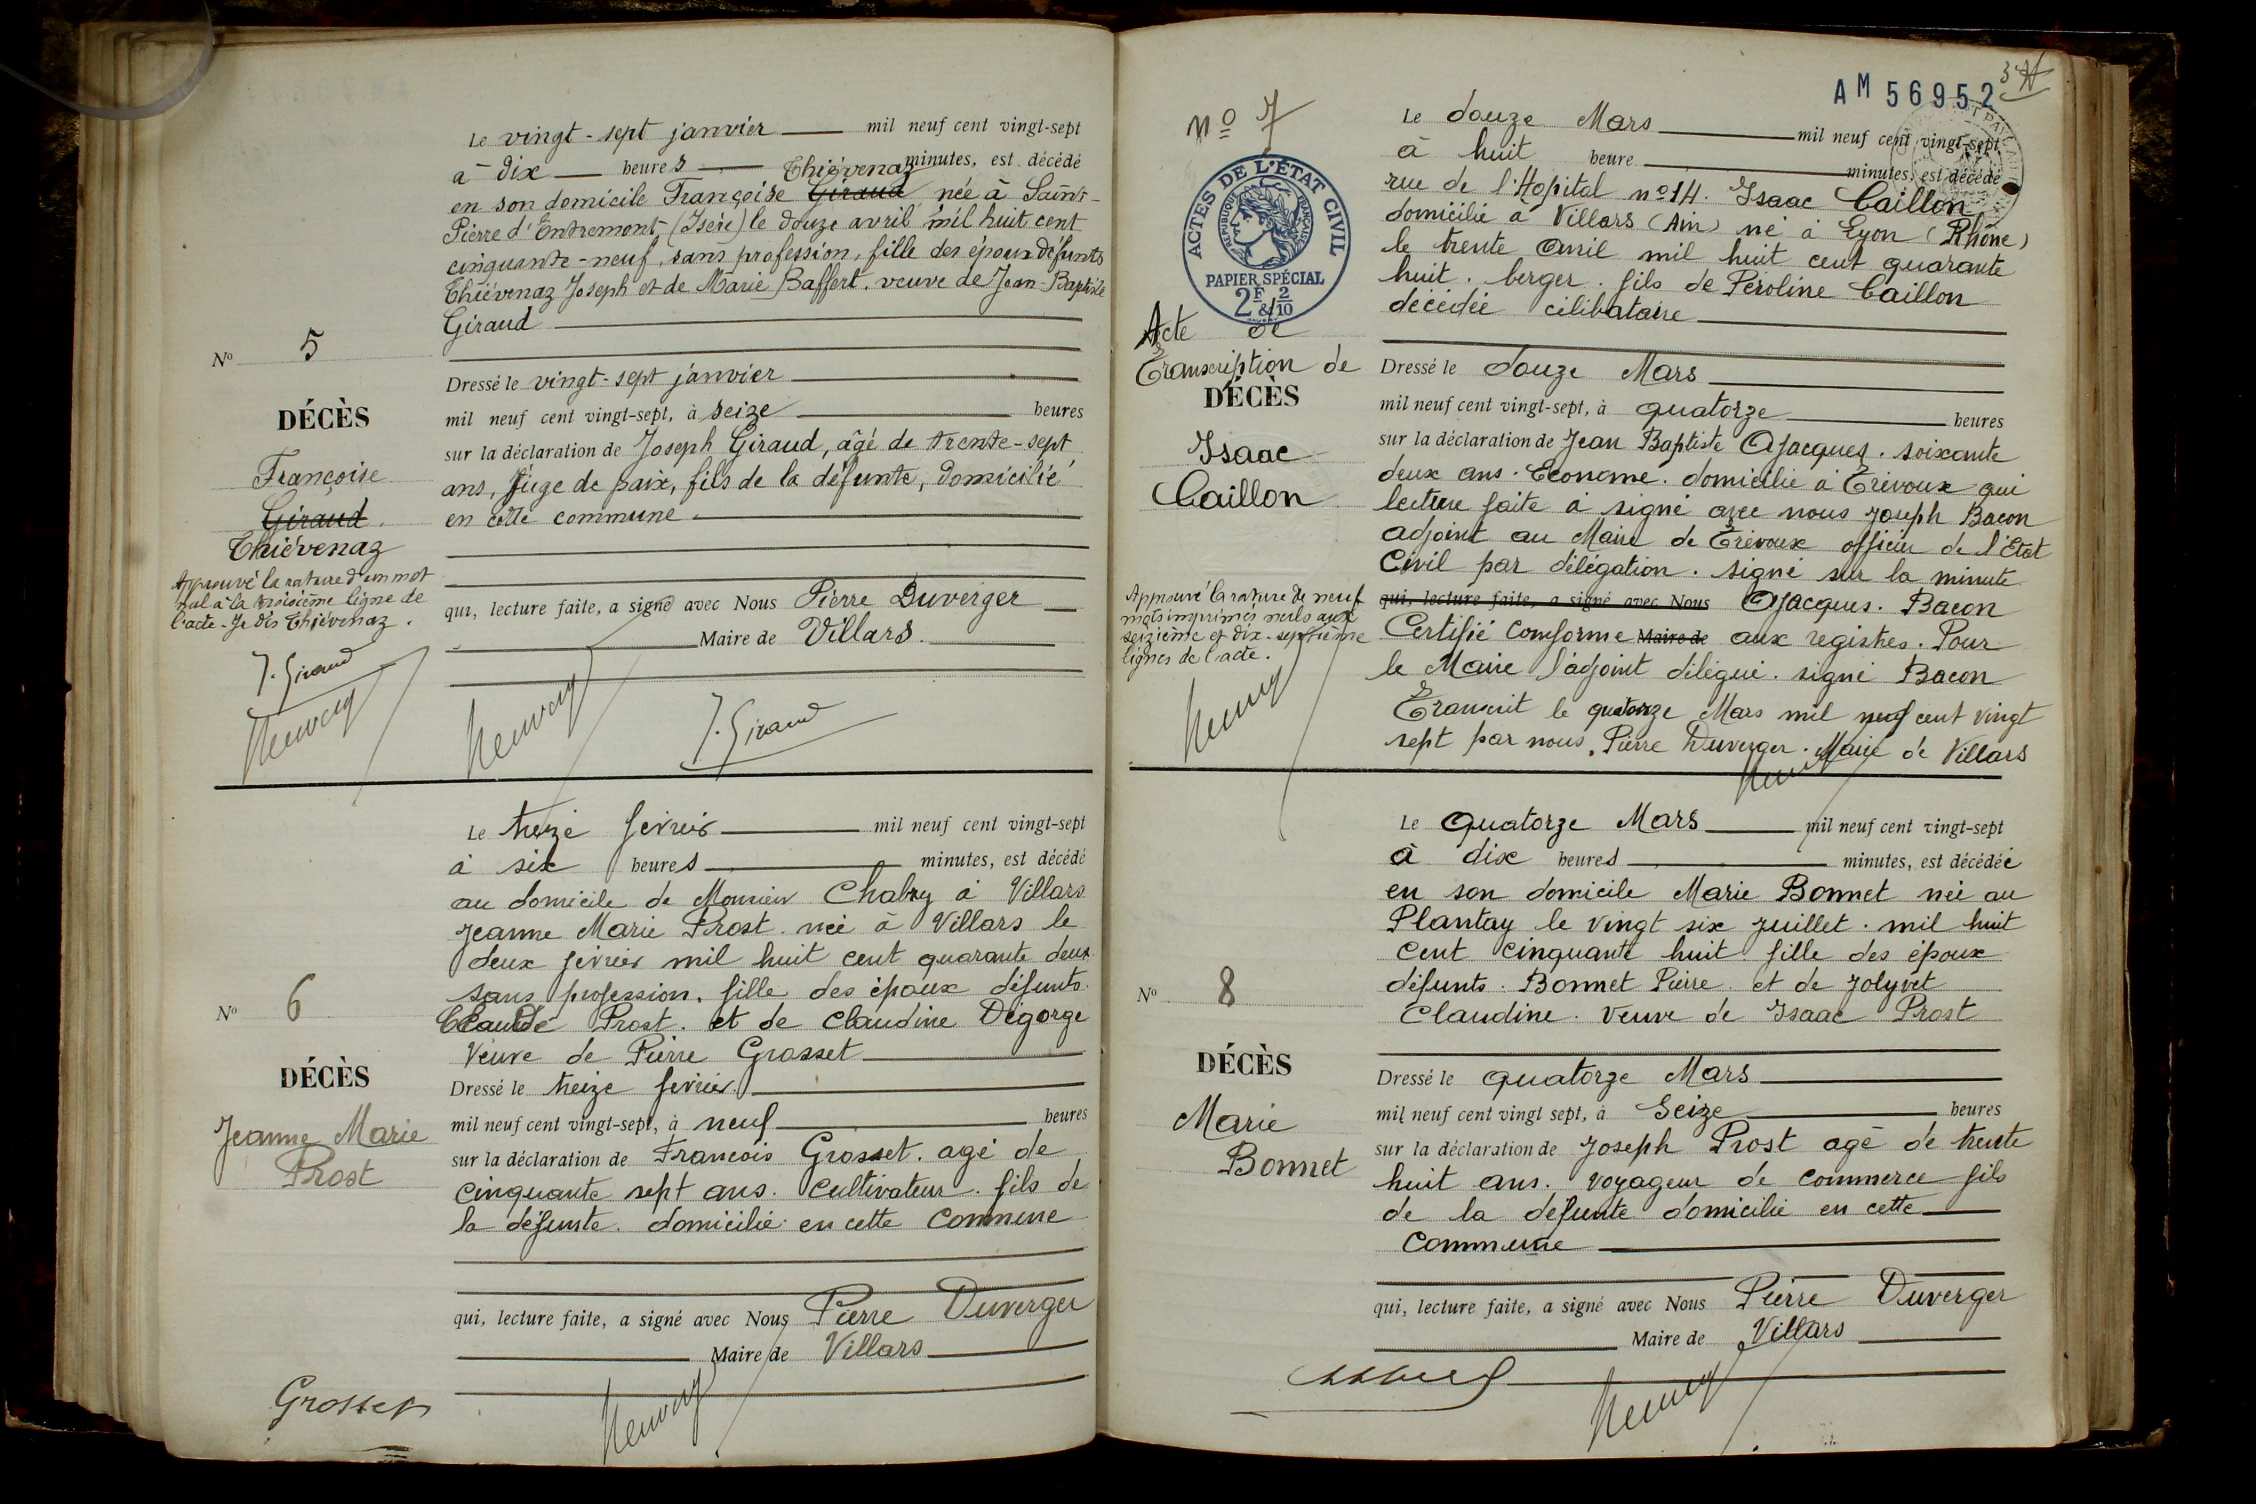 Le vingt-sept janvier mil neuf cent vingt-sept
à dix heures minutes, est décédé
Thiévenaz
en son domicile Françoise Giraud née à Saint-
Pierre d'Entremont (Isère) le douze avril mil huit cent
cinquante-neuf, sans profession, fille des époux défunts
Thiévenaz Joseph et de Marie Baffert. veuve de Jean-Baptiste
Giraud
Nº 5
DÉCÈS
Françoise
Giraud.
Thiévenaz
Approuvé la rature d'un mot
nul à la troisième ligne de
l'acte. Je dis Thiévenaz.
J. Giraud
Dressé le vingt-sept janvier
mil neuf cent vingt-sept, à seize heures
sur la déclaration de Joseph Giraud, âgé de trente-sept
ans, Juge de paix, fils de la défunte, domicilié
en cette commune
qui, lecture faite, a signé avec Nous Pierre Duverger
Maire de Villars.
J. Giraud
Le treize fevrier mil neuf cent vingt-sept
à six heures minutes, est décédé
au domicile de Monsieur Chabry à Villars
Jeanne Marie Prost. née à Villars le
deux fevrier mil huit cent quarante deux
sans profession. fille des époux défunts
Claude Prost. et de Claudine Dégorge
Veuve de Pierre Grosset
Nº 6
DÉCÈS
Jeanne Marie
Prost
Dressé le treize fevrier.
mil neuf cent vingt-sept, à neuf heures
sur la déclaration de Francois Grosset. agé de
cinquante sept ans. Cultivateur. fils de
la défunte. domicilié en cette Commune
qui, lecture faite, a signé avec Nous Pierre Duverger
Maire de Villars
Grosset
AM 56952
Nº 7
ACTES DE L'ÉTAT CIVIL
RÉPUBLIQUE FRANÇAISE
PAPIER SPÉCIAL
2F & 2/10
Acte de
Transcription de
DÉCÈS
Isaac
Caillon
Approuvé la rature de neuf
mots imprimés nuls aux
seizième et dix-septième
lignes de l'acte.
Le douze Mars mil neuf cent vingt-sept
à huit heure minutes, est décédé
rue de l'Hopital nº 14. Isaac Caillon
domicilié à Villars (Ain) né à Lyon (Rhône)
le trente Avril mil huit cent quarante
huit. berger. fils de Péroline Caillon
décédée célibataire
Dressé le douze Mars
mil neuf cent vingt-sept, à quatorze heures
sur la déclaration de Jean Baptiste Ajacques. soixante
deux ans. Econome. domicilié à Trévoux qui
lecture faite à signé avec nous Joseph Bacon
adjoint au Maire de Trévoux officier de l'Etat
Civil par délégation. signé sur la minute
qui, lecture faite, a signé avec Nous Ajacques. Bacon
Certifié Conforme Maire de aux registres. Pour
le Maire l'adjoint délégué. signé Bacon
Transcrit le quatorze Mars mil neuf cent vingt
sept par nous. Pierre Duverger. Maire de Villars
Le Quatorze Mars mil neuf cent vingt-sept
à dix heures minutes, est décédée
en son domicile Marie Bonnet née au
Plantay le vingt six juillet. mil huit
cent cinquante huit. fille des époux
défunts. Bonnet Pierre. et de Jolyvet
Claudine. Veuve de Isaac Prost
Nº 8
DÉCÈS
Marie
Bonnet
Dressé le quatorze Mars
mil neuf cent vingt sept, à Seize heures
sur la déclaration de Joseph Prost agé de trente
huit ans. voyageur de commerce fils
de la défunte domicilié en cette
Commune
qui, lecture faite, a signé avec Nous Pierre Duverger
Maire de Villars